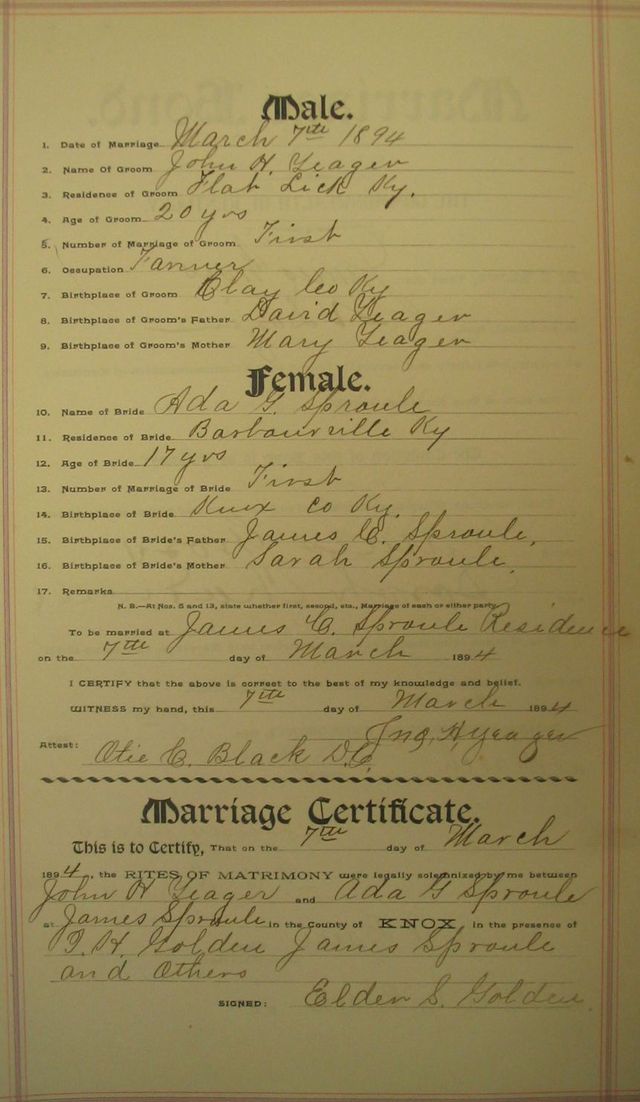 Male.
1. Date of Marriage March 7th 1894
2. Name Of Groom John H. Yeager
3. Residence of Groom Flat Lick Ky.
4. Age of Groom 20 yrs
5. Number of Marriage of Groom First
6. Occupation Farmer
7. Birthplace of Groom Clay Co Ky
8. Birthplace of Groom's Father David Yeager
9. Birthplace of Groom's Mother Mary Yeager
Female.
10. Name of Bride Ada G. Sproule
11. Residence of Bride Barbourville Ky
12. Age of Bride 17 yrs
13. Number of Marriage of Bride First
14. Birthplace of Bride Knox Co Ky.
15. Birthplace of Bride's Father James C. Sproule.
16. Birthplace of Bride's Mother Sarah Sproule.
17. Remarks
N. B.—At Nos. 5 and 13, state whether first, second, etc., Marriage of each or either party.
To be married at James C. Sproule Residence
on the 7th day of March 1894
I CERTIFY that the above is correct to the best of my knowledge and belief.
WITNESS my hand, this 7th day of March 1894
Jno. H Yeager
Attest: Otie C. Black D.C.
Marriage Certificate.
This is to Certify, That on the 7th day of March
1894, the RITES OF MATRIMONY were legally solemnized by me between
John H Yeager and Ada G Sproule
at James Sproule in the County of KNOX in the presence of
H. Golden James Sproule
and Others
SIGNED: Elder S. Golden